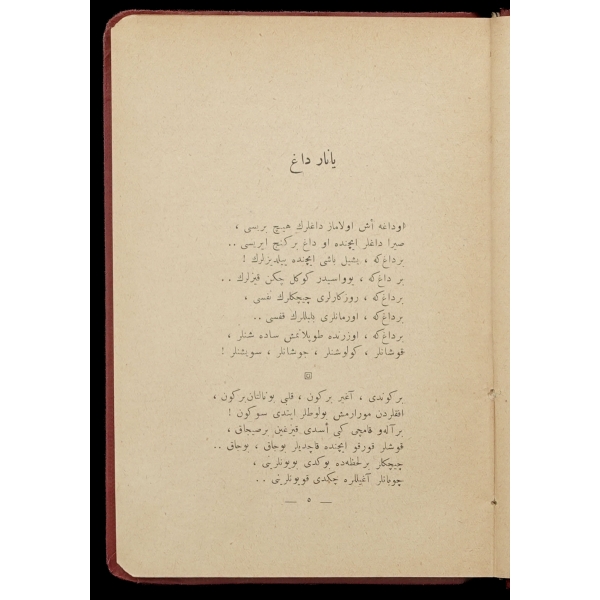 يانار داغ
اوداغه أش اولاماز داغلرك هيچ بريسى ،
صيرا داغلر ايچنده او داغ بركنج ايريسى ..
برداغ‌كه ، يشيل باشى ايچنده ييلديزلرك !
بر داغ‌كه ، يوواسيدر كوكل چكن قيزلرك ..
برداغ‌كه ، روزكارلرى چيچكلرك نفسى ،
برداغ‌كه ، اورمانلرى بلبللرك قفسى ..
برداغ‌كه ، اوزرنده طوپلانمش ساده شنلر ،
قوشانلر ، كولوشنلر ، جوشانلر ، سويشنلر !
بركوندى ، آغير بركون ، قلبى بونالتان بركون ،
افقلردن مورارمش بولوطلر ايندى سوكون !
برآلەو قامچى كبى أسدى قيزغين برصيجاق ،
قوشلر قورقو ايچنده قاچديلر بوجاق ، بوجاق ..
چيچكلر برلحظه‌ده بوكدى بويونلرينى ،
چوبانلر آغيللره چكدى قويونلرينى ..
— ٥ —